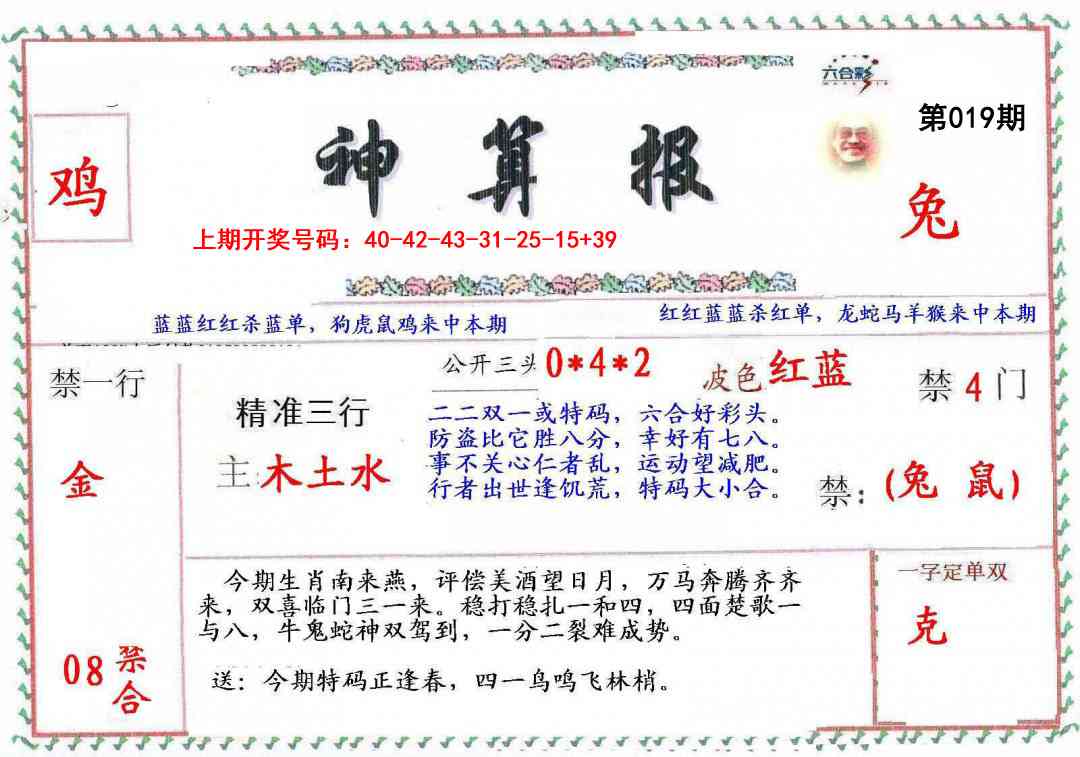 六合彩
第019期
鸡
神算报
兔
上期开奖号码：40-42-43-31-25-15+39
蓝蓝红红杀蓝单，狗虎鼠鸡来中本期
红红蓝蓝杀红单，龙蛇马羊猴来中本期
禁一行
金
08
禁
合
精准三行
主:木土水
公开三头0*4*2
波色红蓝
二二双一或特码，六合好彩头。
防盗比它胜八分，幸好有七八。
事不关心仁者乱，运动望减肥。
行者出世逢饥荒，特码大小合。
禁4门
禁:(兔 鼠)
今期生肖南来燕，评偿美酒望日月，万马奔腾齐齐
来，双喜临门三一来。稳打稳扎一和四，四面楚歌一
与八，牛鬼蛇神双驾到，一分二裂难成势。
送：今期特码正逢春，四一鸟鸣飞林梢。
一字定单双
克